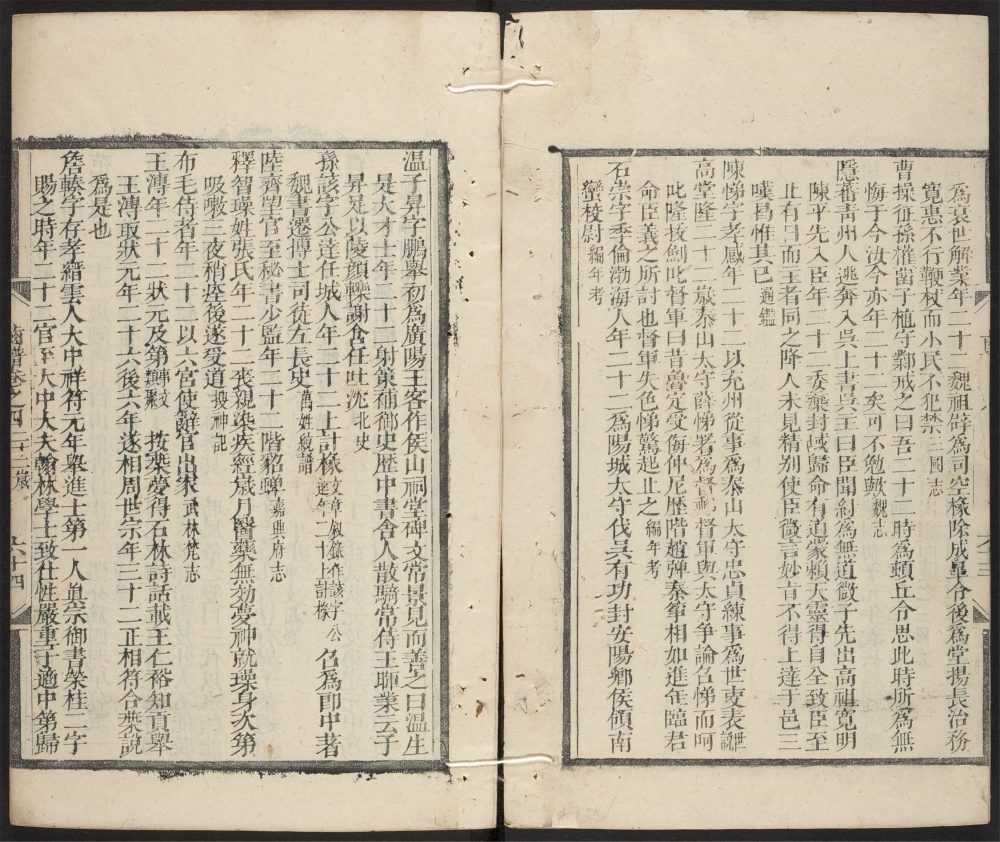 為衰世解業年二十二魏祖辟為司空椽除成臯令後為堂揚長治務
寬惠不行鞭杖而小民不犯禁三國志
曹操征孫權畱子植守鄴戒之曰吾二十二時為頓丘令思此時所為無
悔于今汝今亦年二十二矣可不勉歟魏志
隱蕃青州人逃奔入吳上書吳王曰臣聞紂為無道微子先出高祖寬明
陳平先入臣年二十二委棄封域歸命有道蒙賴天靈得自全致臣至
止有日而主者同之降人未見精别使臣微言妙旨不得上達于邑三
嘆曷惟其已通鑑
陳悌字孝威年二十二以兖州從事為泰山太守忠貞練事為世吏表
高堂隆二十二歲泰山太守薛悌署為督郵督軍與太守争論名悌而呵
叱隆按劍叱督軍曰昔魯定受侮仲尼歷階趙彈秦箏相如進缶臨君
命臣義之所討也督軍失色悌驚起止之編年考
石崇字季倫渤海人年二十二為陽城太守伐吳有功封安陽鄉侯傾南
蠻校尉編年考
温子昇字鵬舉初為廣陽王客作侯山祠堂碑文常景見而善之曰温生
是大才士年二十二射策補御史歴中書舍人散騎常侍王暉業云子
昇足以陵顔轢謝含任吐沈北史
孫該字公達任城人年二十二上計椽文章叙錄作該字公達年二十上計椽 召為郎中著
魏書遷博士司徒左長史萬姓統譜
陸齊望官至秘書少監年二十二階貂蟬嘉興府志
釋智璪姓張氏年二十二喪親染疾經歲月醫藥無効夢神就璪身次第
吸嗽三夜稍痊後遂受道搜神記
布毛侍者年二十二以六宫使辭官出家武林梵志
王溥年二十二狀元及第事文類聚 按葉夢得石林詩話載王仁裕知貢舉
王溥取狀元年二十六後六年遂相周世宗年三十二正相符合葉説
為是也
詹騤字存孝縉雲人大中祥符元年舉進士第一人真宗御書榮桂二字
賜之時年二十二官至大中大夫翰林學士致仕性嚴重子適中第歸
齒譜卷之四 二十二歲 六十四